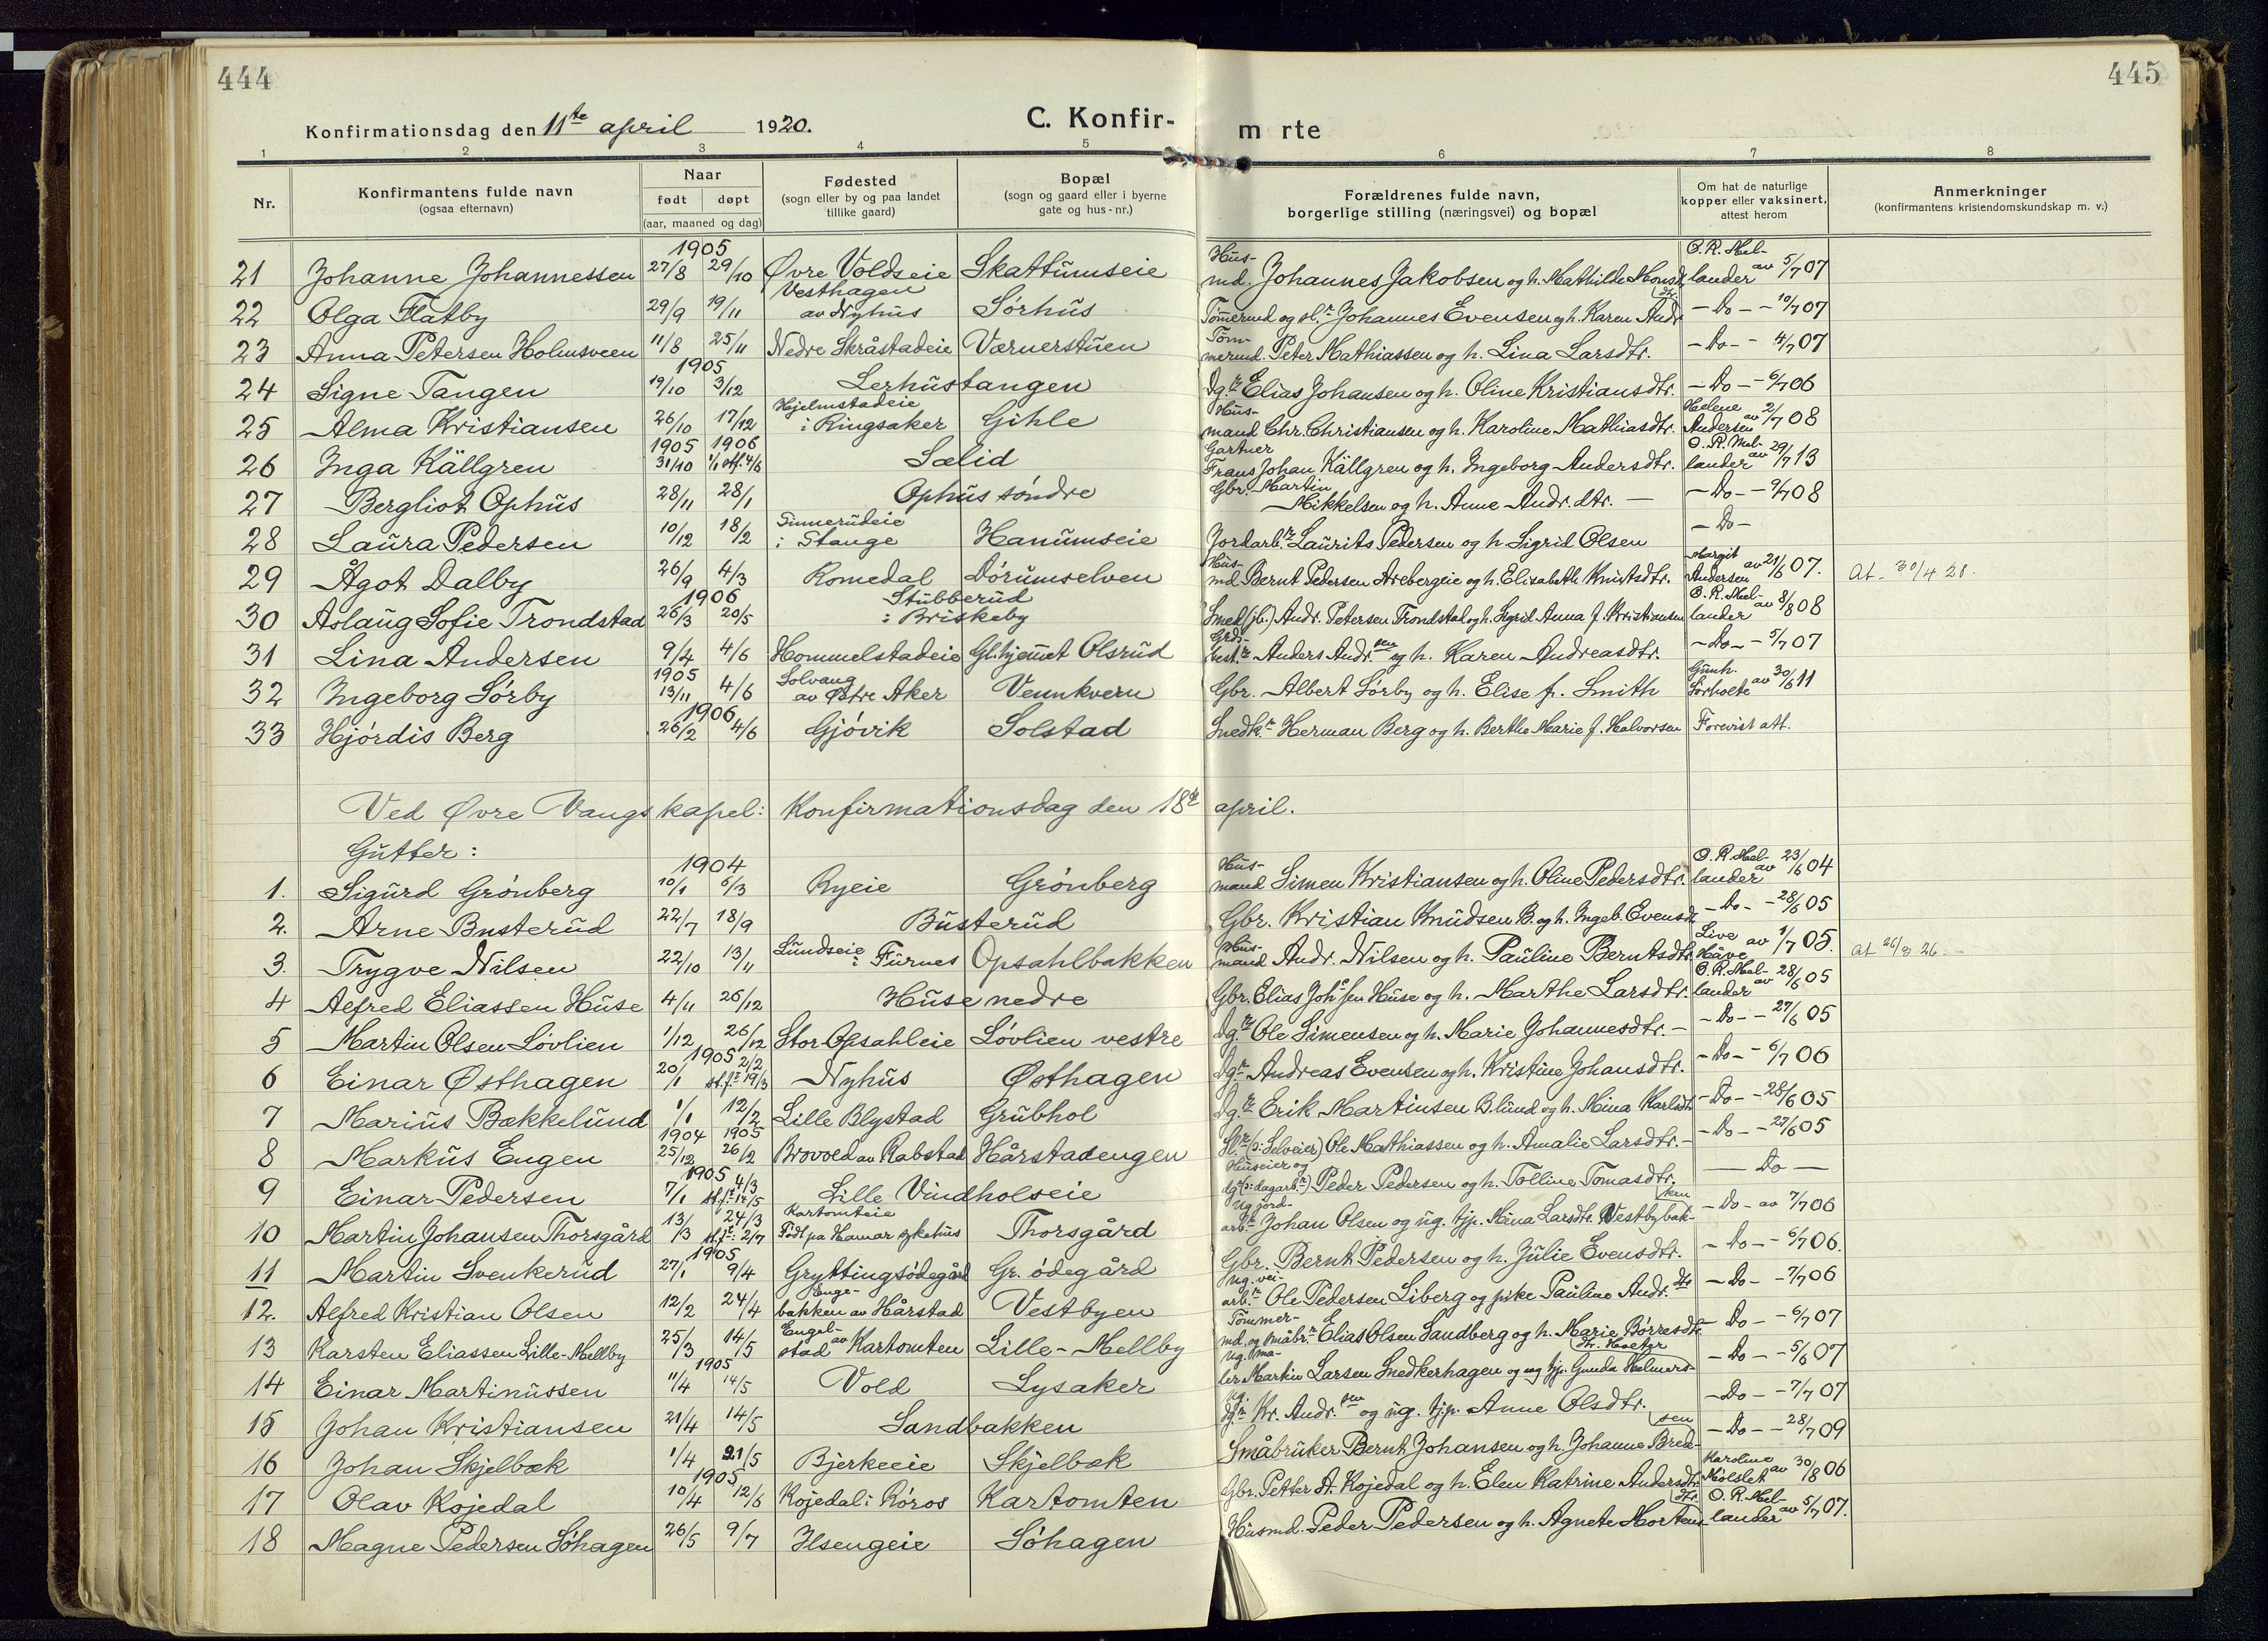 444
445
Konfirmationsdag den 11te april 1920.
C. Konfir-
m rte
1 2 3 4 5 6 7 8
Nr.
Konfirmantens fulde navn
(ogsaa efternavn)
Naar
født døpt
(aar, maaned og dag)
Fødested
(sogn eller by og paa landet
tillike gaard)
Bopæl
(sogn og gaard eller i byerne
gate og hus-nr.)
Forældrenes fulde navn,
borgerlige stilling (næringsvei) og bopæl
Om hat de naturlige
kopper eller vaksinert,
attest herom
Anmerkninger
(konfirmantens kristendomskundskap m. v.)
1905
21 Johanne Johannessen 27/8 29/10 Øvre Voldseie Skattumseie Husmd. Johannes Jakobsen og h. Mathilde Monsdtr. O. R. Mellander av 5/7 07
22 Olga Flatby 29/9 19/11 Vesthagen av Nyhus Sørhus Tømmermd og sl.r Johannes Evensen og h. Karen Andr. - Do - - 10/7 07
23 Anna Petersen Holmsveen 11/8 25/11 Nedre Skråstadeie Værnerstuen Tømmermd. Peter Mathiassen og h. Lina Larsdtr. - Do - - 4/7 07
1905
24 Signe Tangen 19/10 3/12 Lerhustangen Dg.r Elias Johansen og h. Oline Kristiansdtr. - Do - - 6/7 06
25 Alma Kristiansen 26/10 17/12 Hjelmstadeie i Ringsaker Gihle Husmand Chr. Christiansen og h. Karoline Mathiasdtr. Helene Andersen av 2/7 08
1905 1906
26 Inga Källgren 31/10 1/1 stf. 4/6 Sælid Gartner Frans Johan Källgren og h. Ingeborg Andersdtr. O. R. Mellander av 29/7 13
27 Bergliot Ophus 28/11 28/1 Ophus søndre Gbr. Martin Mikkelsen og h. Anne Andr.dtr. — - Do - - 9/7 08
28 Laura Pedersen 10/12 18/2 Sinnerudeie i Stange Hanumseie Jordarb.r Laurits Pedersen og h. Sigrid Olsen - Do -
29 Ågot Dalby 26/9 4/3 Romedal Dørumselven Husmd. Bernt Pedersen Arebergeie og h. Elisabeth Knutsdtr. Margit Andersen av 21/6 07. At. 30/4 28.
1906
30 Aslaug Sofie Trondstad 26/3 20/5 Stubberud i Briskeby Smed (jb.) Andr. Petersen Trondstad og h. Sigrid Anna f. Kristiansen O. R. Mellander av 8/8 08
31 Lina Andersen 9/4 4/6 Hommelstadeie Gl.hjemmet Olsrud Grdbest.r Anders Andr.sen og h. Karen Andreasdtr. - Do - - 5/7 07
1905
32 Ingeborg Sørby 13/11 4/6 Solvang av Østre Aker Vennkvern Gbr. Albert Sørby og h. Elise f. Smith Gunh. Sørholte av 30/6 11
1906
33 Hjørdis Berg 26/2 4/6 Gjøvik Solstad Snedk.r Herman Berg og h. Berthe Marie f. Halvorsen Forevist att.
Ved Øvre Vangs kapel: Konfirmationsdag den 18de april.
Gutter:
1904
1. Sigurd Grønberg 10/1 6/3 Ryeie Grønberg Husmand Simen Kristiansen og h. Oline Pedersdtr. O. R. Mellander av 23/6 04
2. Arne Busterud 22/7 18/9 Busterud Gbr. Kristian Knudsen B. og h. Ingeb. Evensdt. - Do - - 28/6 05
3. Trygve Nilsen 22/10 13/11 Lundseie i Furnes Opsahlbakken Husmand Andr. Nilsen og h. Pauline Berntsdtr. Live Håve av 1/7 05. At 26/3 26.
4 Alfred Eliassen Huse 4/11 26/12 Huse nedre Gbr. Elias Joh'sen Huse og h. Marthe Larsdtr. O. R. Mellander av 28/6 05
5 Martin Olsen Løvlien 1/12 26/12 Stor Opsahleie Løvlien vestre Dg.r Ole Simensen og h. Marie Johannesdtr. - - Do - - 27/6 05
1905
6 Einar Østhagen 20/1 2/2 st.f.t 19/3 Nyhus Østhagen Dg.r Andreas Evensen og h. Kristine Johansdtr. - Do - - 6/7 06
7 Marius Bækkelund 1/1 12/2 Lille Blystad Grubhol Dg.r Erik Martinsen B.lund og h. Mina Karlsdt. - Do - - 28/6 05
1904 1905
8 Markus Engen 25/12 26/2 Brovold av Rabstad Hårstadengen Sl.r (: Selveier) Ole Mathiassen og h. Amalie Larsdtr. - - Do - - 27/6 05
1905
9 Einar Pedersen 7/1 4/3 st.f.t 14/5 Lille Vindholseie Huseier og dgr (: dagarb.r) Peder Pedersen og h. Tolline Tomasdtr. — Do —
10 Martin Johansen Thorsgård 13/3 24/3 st.f.t: 2/7 Kartomteie Født på Hamar sykehus Thorsgård Ug. jordarb.r Johan Olsen og ug. tjp. Mina Larsdtr. Vestbybakken - Do - av 7/7 06
1905
11 Martin Svenkerud 27/1 9/4 Gryttingsødegård Gr. ødegård Gbr. Bernt Pedersen og h. Julie Evensdtr. - Do - - 6/7 06.
12. Alfred Kristian Olsen 12/2 24/4 Engebakken av Hårstad Vestbyen Ug. veiarb.r Ole Pedersen Liberg og pike Pauline Andr.dtr - Do - - 7/7 06
13 Karsten Eliassen Lille-Mellby 25/3 14/5 Engelstad av Kartomten Lille-Mellby Tømmermd. og småbr.r Elias Olsen Sandberg og h. Marie Børresdtr. - Do - - 6/7 07
1905
14 Einar Martinussen 11/4 14/5 Vold Lysaker Ug. maler Martin Larsen Snedkerhagen og ug tjp. Gunda Helmersdtr. - Do - - 5/6 07
15 Johan Kristiansen 21/4 14/5 Sandbakken Ug. dg.r Kr. Andr.sen og ug. tjp. Anne Olsdtr. - Do - - 7/7 07
16 Johan Skjelbæk 1/4 21/5 Bjerkeeie Skjelbæk Småbruker Bernt Johansen og h. Johanne Bredesen - Do - - 28/7 09
1905
17 Olav Kojedal 10/4 12/6 Kojedal i Røros Kartomten Gbr. Petter A. Kojedal og h. Elen Katrine Andersdtr. Karoline Mølslet av 30/8 06
18 Magne Pedersen Søhagen 26/5 9/7 Ilsengeie Søhagen Husmd. Peder Pedersen og h. Agnete Mortensdtr. O. R. Mellander av 5/7 07.